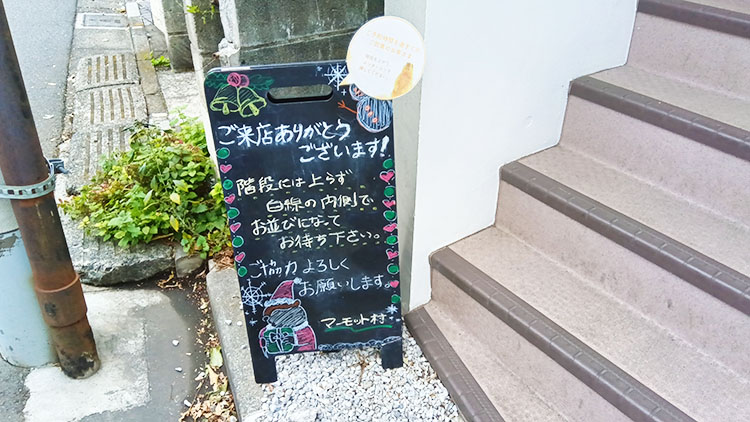 ご来店ありがとう
ございます!
階段には上らず
白線の内側で、
お並びになって
お待ち下さい。
ご協力よろしく
お願いします。
マーモット村